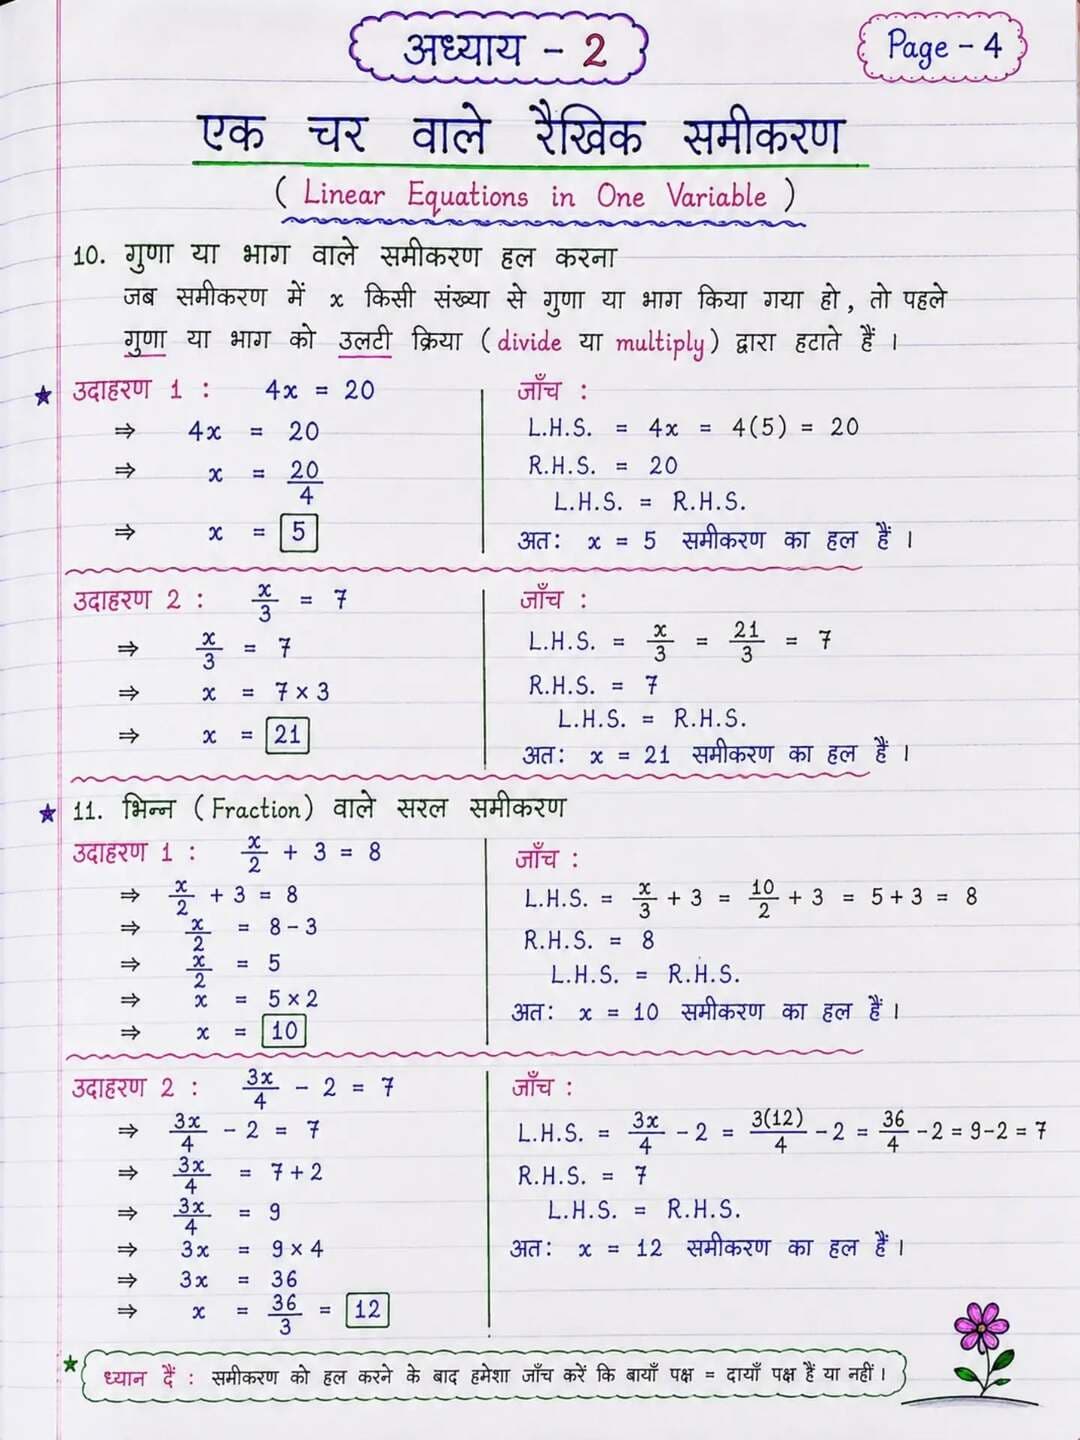 अध्याय - 2
Page - 4
एक चर वाले रैखिक समीकरण
( Linear Equations in One Variable )
10. गुणा या भाग वाले समीकरण हल करना
जब समीकरण में x किसी संख्या से गुणा या भाग किया गया हो, तो पहले
गुणा या भाग को उलटी क्रिया ( divide या multiply ) द्वारा हटाते हैं ।
★ उदाहरण 1 : 4x = 20
⇒ 4x = 20
⇒ x = 20/4
⇒ x = 5
जाँच :
L.H.S. = 4x = 4(5) = 20
R.H.S. = 20
L.H.S. = R.H.S.
अतः x = 5 समीकरण का हल हैं ।
उदाहरण 2 : x/3 = 7
⇒ x/3 = 7
⇒ x = 7 × 3
⇒ x = 21
जाँच :
L.H.S. = x/3 = 21/3 = 7
R.H.S. = 7
L.H.S. = R.H.S.
अतः x = 21 समीकरण का हल हैं ।
★ 11. भिन्न ( Fraction ) वाले सरल समीकरण
उदाहरण 1 : x/2 + 3 = 8
⇒ x/2 + 3 = 8
⇒ x/2 = 8 - 3
⇒ x/2 = 5
⇒ x = 5 × 2
⇒ x = 10
जाँच :
L.H.S. = x/3 + 3 = 10/2 + 3 = 5 + 3 = 8
R.H.S. = 8
L.H.S. = R.H.S.
अतः x = 10 समीकरण का हल हैं ।
उदाहरण 2 : 3x/4 - 2 = 7
⇒ 3x/4 - 2 = 7
⇒ 3x/4 = 7 + 2
⇒ 3x/4 = 9
⇒ 3x = 9 × 4
⇒ 3x = 36
⇒ x = 36/3 = 12
जाँच :
L.H.S. = 3x/4 - 2 = 3(12)/4 - 2 = 36/4 - 2 = 9 - 2 = 7
R.H.S. = 7
L.H.S. = R.H.S.
अतः x = 12 समीकरण का हल हैं ।
★ ध्यान दैं : समीकरण को हल करने के बाद हमेशा जाँच करें कि बायाँ पक्ष = दायाँ पक्ष हैं या नहीं ।